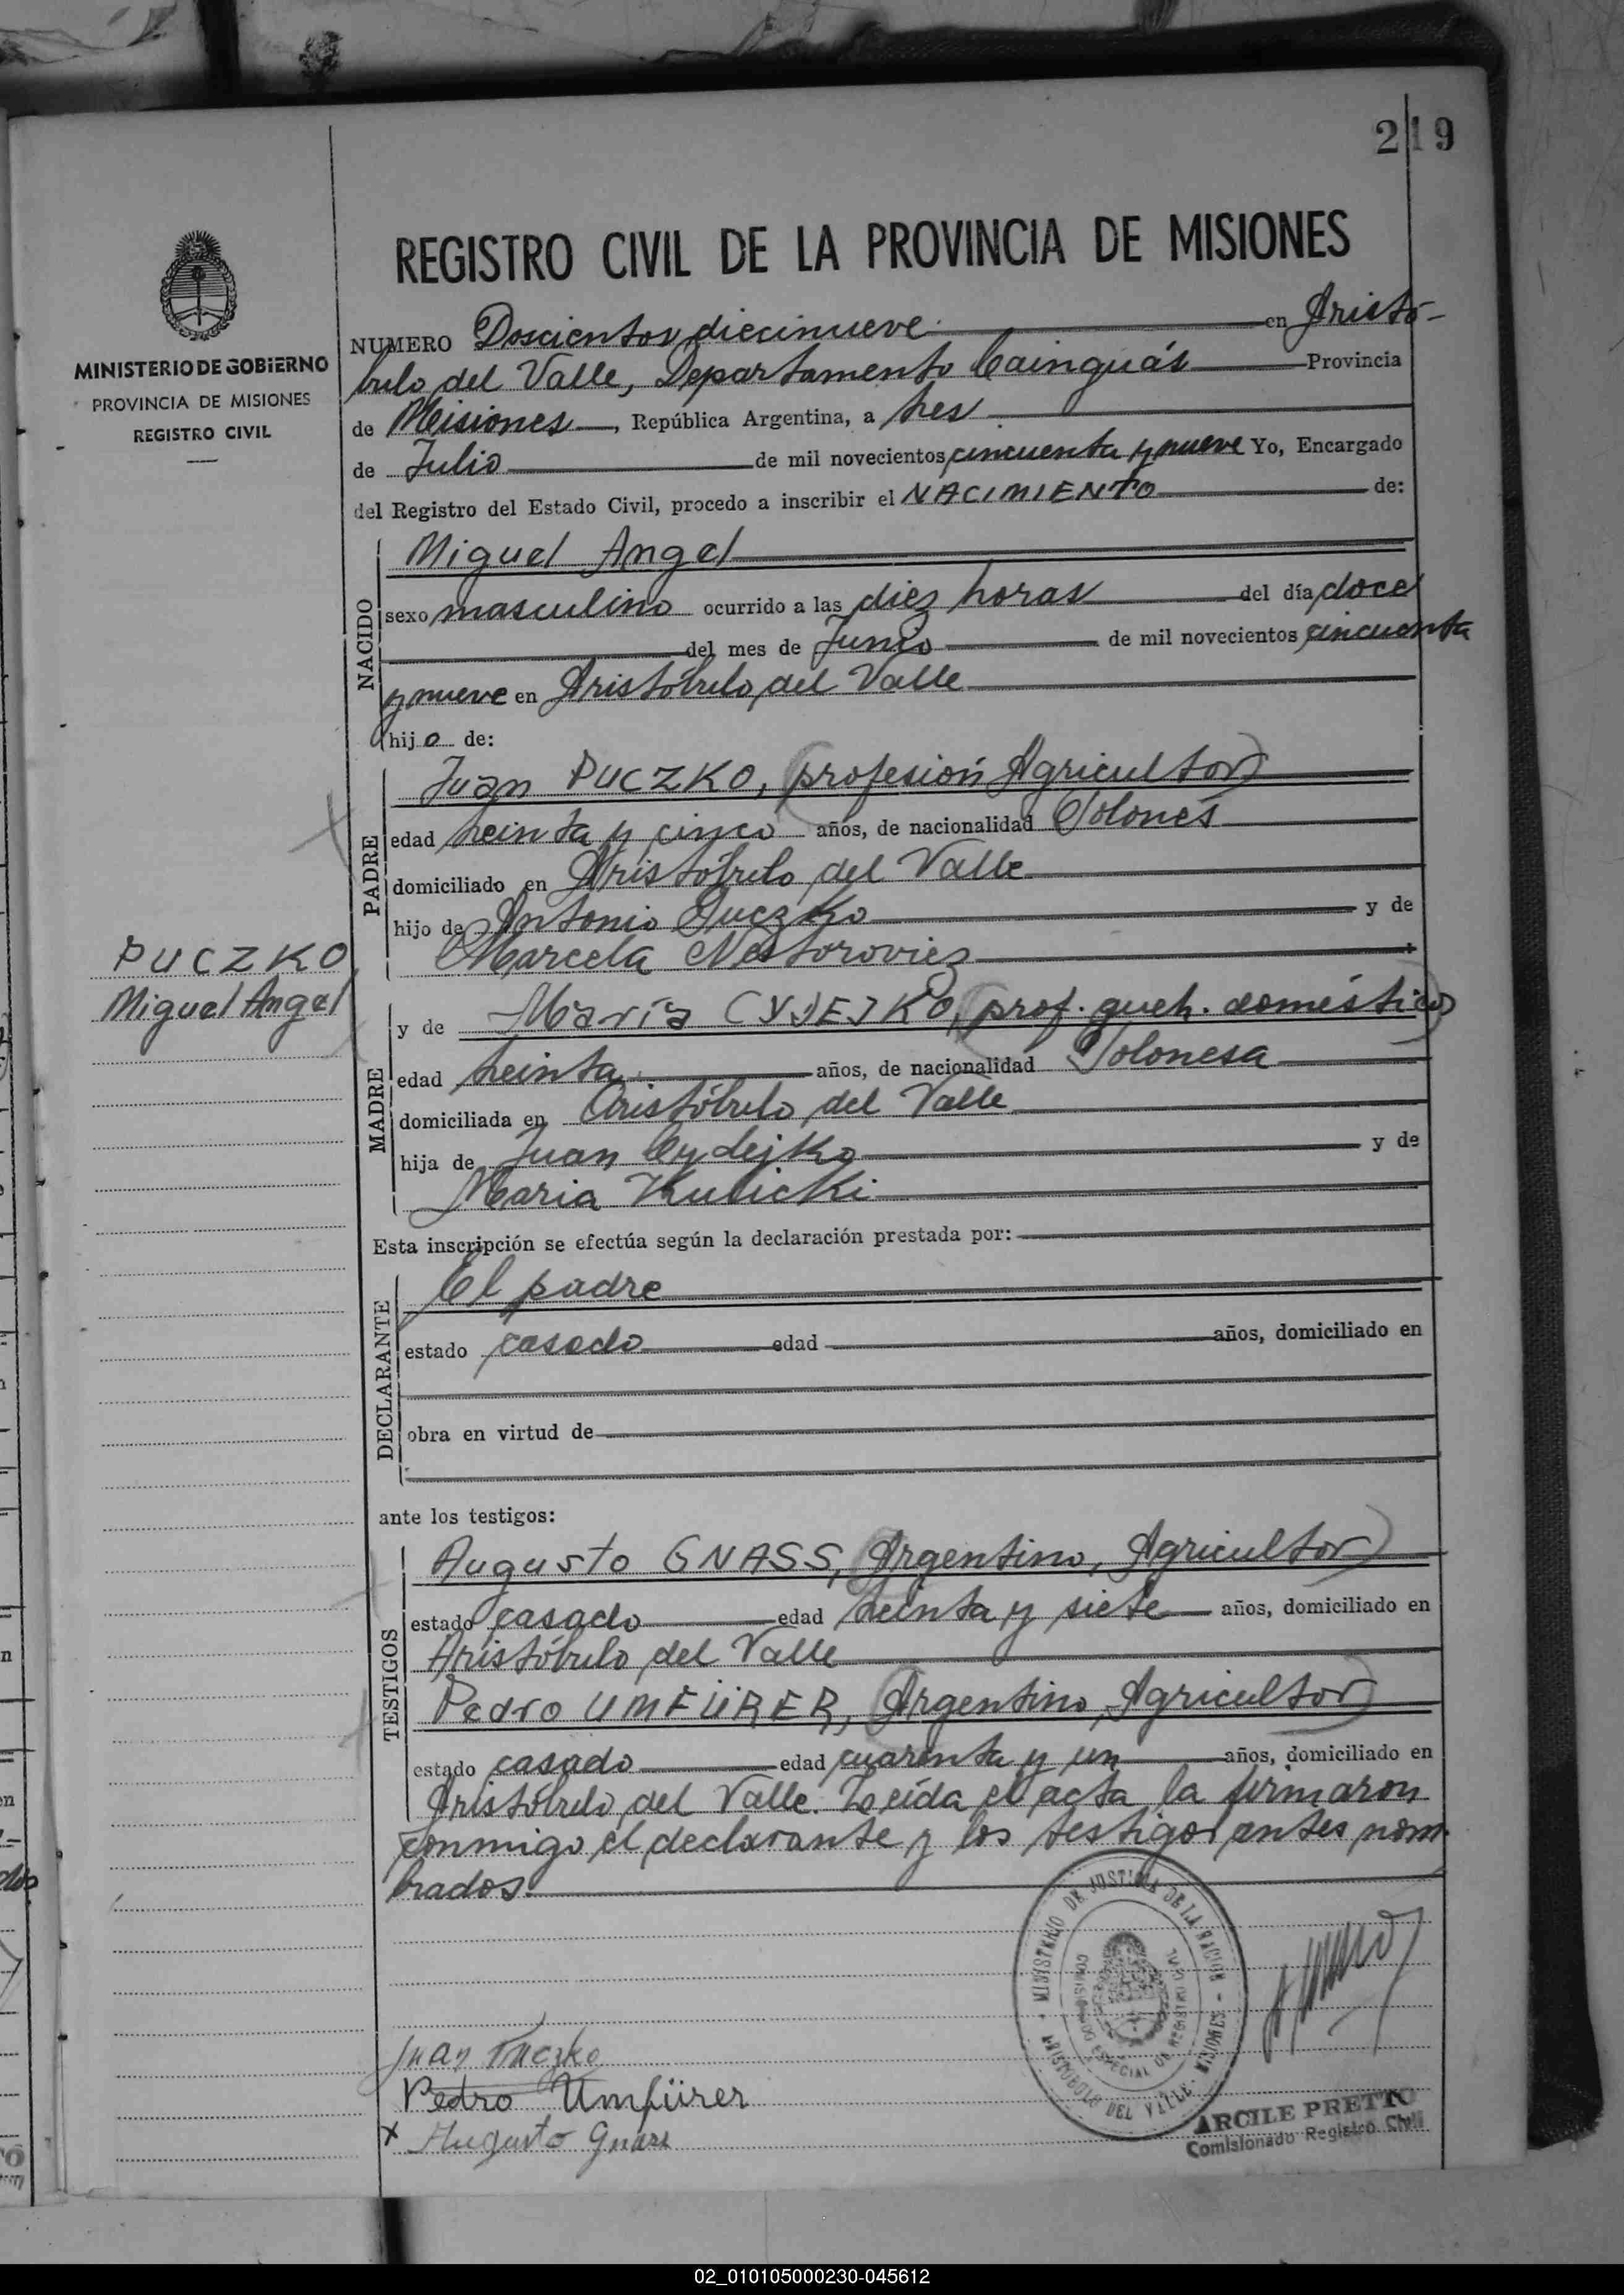 219
MINISTERIO DE GOBIERNO
PROVINCIA DE MISIONES
REGISTRO CIVIL
REGISTRO CIVIL DE LA PROVINCIA DE MISIONES
NUMERO Doscientos diecinueve en Aristó-
bulo del Valle, Departamento Cainguás Provincia
de Misiones, República Argentina, a tres
de Julio de mil novecientos cincuenta y nueve Yo, Encargado
del Registro del Estado Civil, procedo a inscribir el NACIMIENTO de:
NACIDO
Miguel Angel
sexo masculino ocurrido a las diez horas del día doce
del mes de Junio de mil novecientos cincuenta
y nueve en Aristóbulo del Valle
hijo de:
PADRE
Juan PUCZKO, (profesión Agricultor)
edad treinta y cinco años, de nacionalidad Polonés
domiciliado en Aristóbulo del Valle
hijo de Antonio Puczko y de
Marcela Nestorovicz
PUCZKO
Miguel Angel
MADRE
y de María CYDEJKO, (prof. queh. doméstico)
edad treinta años, de nacionalidad Polonesa
domiciliada en Aristóbulo del Valle
hija de Juan Cydejko y de
Maria Kulicki
Esta inscripción se efectúa según la declaración prestada por:
DECLARANTE
El padre
estado casado edad años, domiciliado en
obra en virtud de
ante los testigos:
TESTIGOS
Augusto GNASS, (Argentino, Agricultor)
estado casado edad treinta y siete años, domiciliado en
Aristóbulo del Valle
Pedro UMFÜRER, (Argentino, Agricultor)
estado casado edad cuarenta y un años, domiciliado en
Aristóbulo del Valle. Leída el acta la firmaron
conmigo el declarante y los testigos antes nom-
brados.
MINISTERIO DE JUSTICIA DE LA NACION - MISIONES
ARISTOBULO DEL VALLE
COMISIONADO ESPECIAL DE REGISTRO CIVIL
Juan Puczko
Pedro Umfürer
x Augusto Gnass
ARCILE PRETTO
Comisionado Registro Civil
02_010105000230-045612